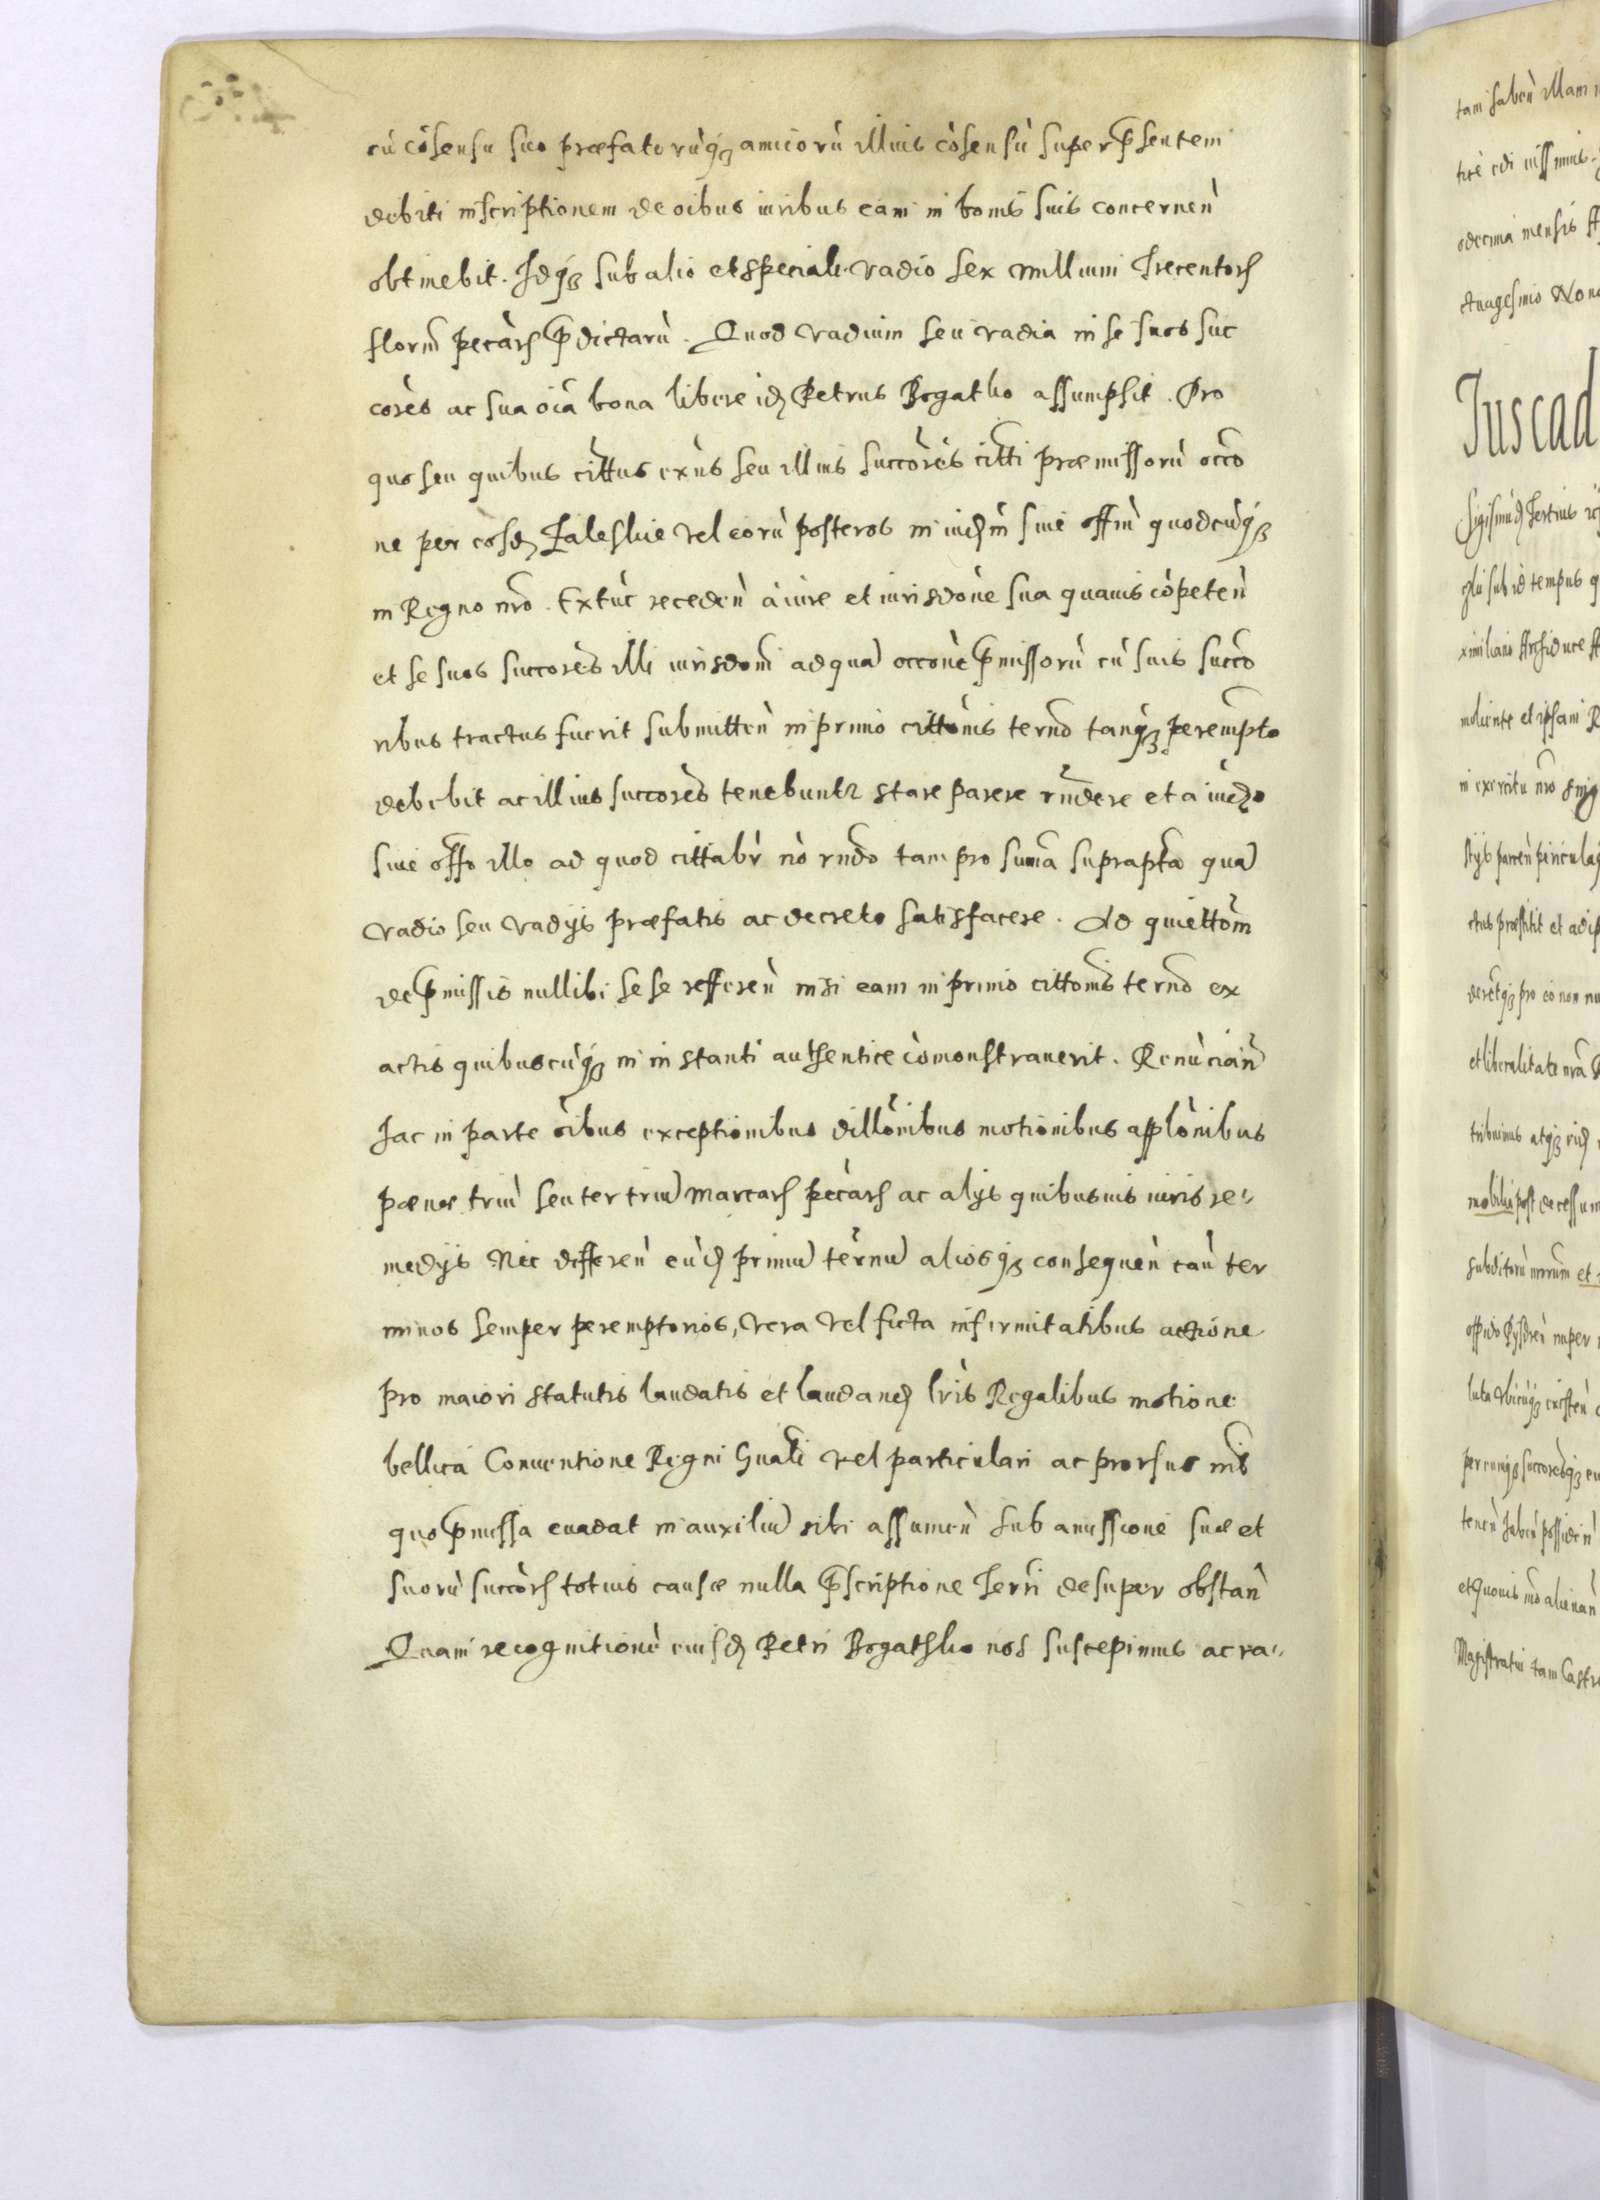 cu cosensu suo præfatorùq3 amicorù illius còsensù super psentem
debiti inscriptionem de oibus iuribus eam in bonis suis concernen
obtinebit. Idq3 sub alio et speciali vadio sex millium Trecentor
floren pecar pdictarù. Quod vadium seu vadia in se suos suc
cores ac sua oia bona libere id Petrus Bogatko assumpsit. Pro
quo seu quibus cittus exns seu illius succores citti præmissorù occo
ne per eosd Zaleskie vel eorù posteros in iudm siue offm quodcuq3
in Regno nro. Extùc receden à iure et iurisdone sua quauis còpeten
et se suos succores illi iurisdoni ad qua occone pmissorù cù suis succo
ribus tractus fuerit submitten in primo cittonis terno tanq3 perempto
debebit ac illius succores tenebuntr stare parere rndere et a iudo
siue offo illo ad quod cittabr nò rndo tam pro suma suprapta qua
vadio seu vadijs præfatis ac decreto satisfacere. Ad quiettom
de pmissis nullibi se se refferen nisi eam in primo cittonis terno ex
actis quibuscuq3 in instanti authentice còmonstrauerit. Renùcian
hac in parte oibus exceptionibus dillonibus motionibus applonibus
pænæ triù seu ter triu marcar pecar ac alijs quibusuis iuris re"
medijs Nec differen eùd primu ternu aliosq3 consequen cau ter
minos semper peremptorios, vera vel ficta infirmitatibus actione
pro maiori statutis laudatis et laudand lris Regalibus motione
bellica Conuentione Regni Gnali vel particulari ac prorsus nil
quo pmissa euadat in auxiliu sibi assumen sub amissione suæ et
suorù succor totius causæ nulla pscriptione Terri desuper obstan
Quam recognitione eiusd Petri Bogatsko nos suscepimus ac ra"
tam haben illam
Iuscad
Sigismud Tertius
sub id tempus
ximiliano Archiduce
et ipsam
in exercitu nro
ctus præstitit et
pro eo non
et liberalitate nra
tribuimus atq3
mobilia post decessum
subditorù nrorum et
nuper
existen
et Quouis modo alienan
Magistratui tam Castr